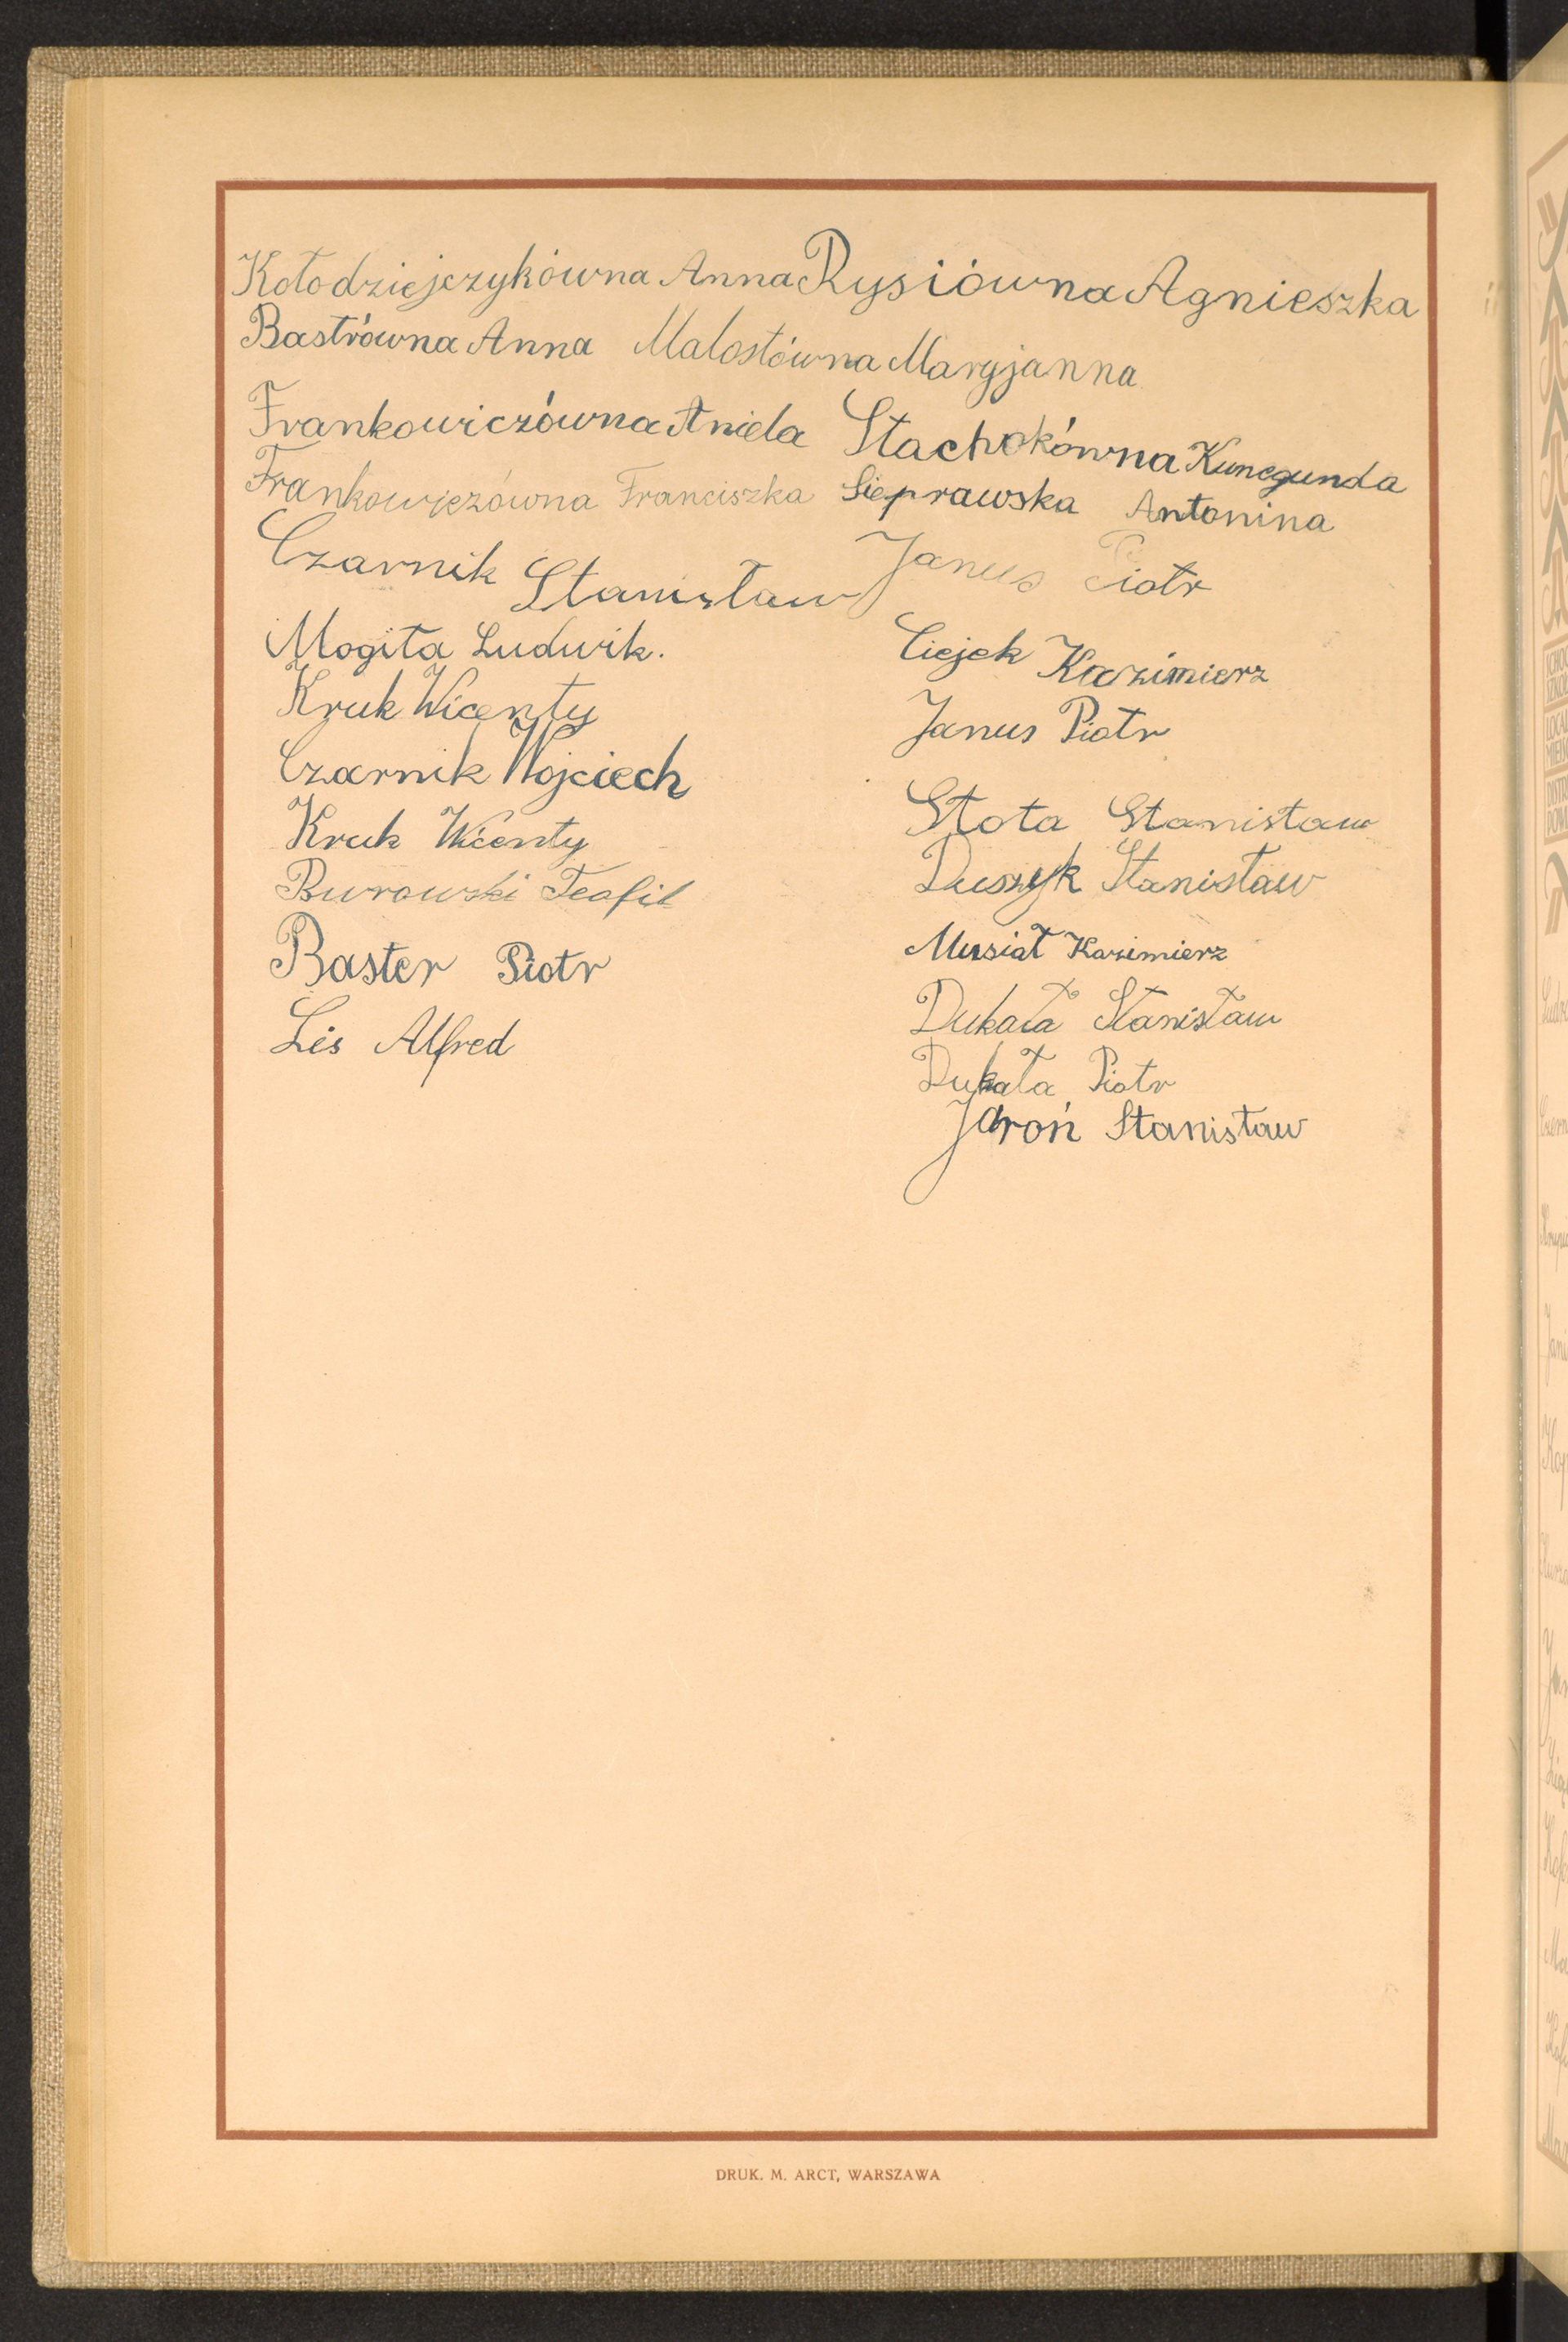 Kołodziejczykówna Anna Rysiówna Agnieszka
Bastrówna Anna Malostówna Maryjanna
Frankowiczówna Aniela Stachokówna Kunegunda
Frankowiczówna Franciszka Sieprawska Antonina
Czarnik Stanisław Janus Piotr
Mogiła Ludwik. Ciejek Kazimierz
Kruk Wicenty Janus Piotr
Czarnik Wojciech Stota Stanisław
Kruk Wicenty Duszyk Stanisław
Burowski Teofil Musiał Kazimierz
Baster Piotr Dukała Stanisław
Lis Alfred Dukała Piotr
Jaroń Stanisław
DRUK. M. ARCT, WARSZAWA